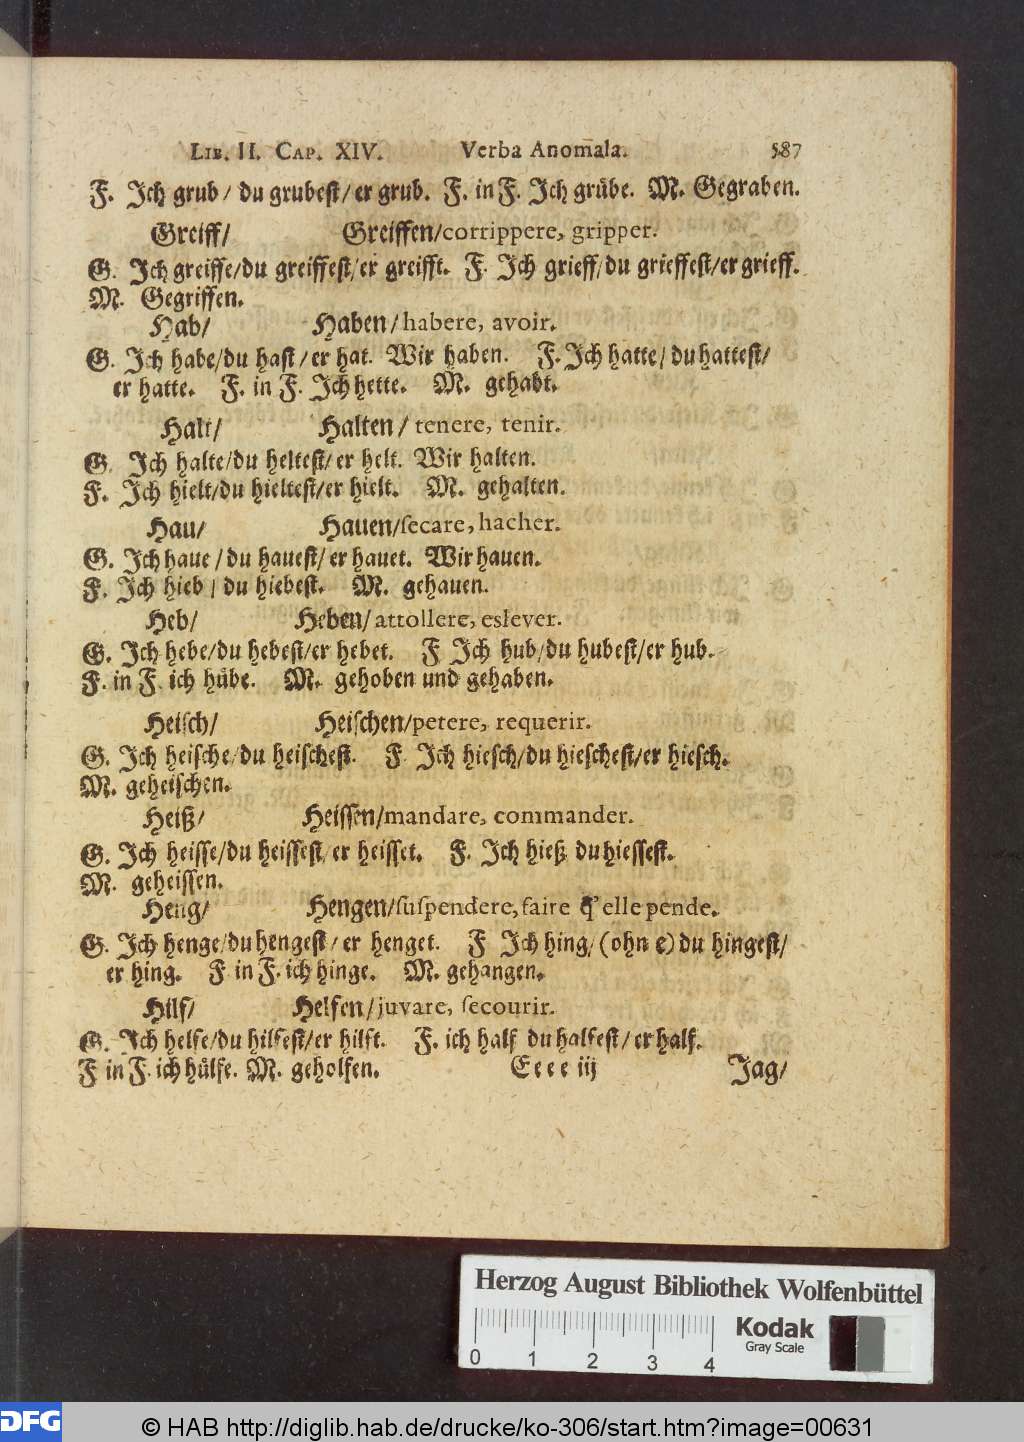 LIB. II. CAP. XIV. Verba Anomala. 587
F. Ich grub / du grubest / er grub. F. in F. Ich grůbe. M. Gegraben.
Greiff/ Greiffen/corrippere, gripper.
G. Ich greiffe/du greiffest/er greifft. F. Ich grieff/du grieffest/er grieff.
M. Gegriffen.
Hab/ Haben/habere, avoir.
G. Ich habe/du hast/er hat. Wir haben. F. Ich hatte/du hattest/
er hatte. F. in F. Ich hette. M. gehabt.
Halt/ Halten/ tenere, tenir.
G. Ich halte/du heltest/er helt. Wir halten.
F. Ich hielt/du hieltest/er hielt. M. gehalten.
Hau/ Hauen/secare, hacher.
G. Ich haue/du hauest/er hauet. Wir hauen.
F. Ich hieb/ du hiebest. M. gehauen.
Heb/ Heben/attollere, eslever.
G. Ich hebe/du hebest/er hebet. F Ich hub/du hubest/er hub.
F. in F. ich hůbe. M. gehoben und gehaben.
Heisch/ Heischen/petere, requerir.
G. Ich heische/du heischest. F. Ich hiesch/du hieschest/er hiesch.
M. geheischen.
Heiß/ Heissen/mandare, commander.
G. Ich heisse/du heissest/er heisset. F. Ich hieß/du hiessest.
M. geheissen.
Heng/ Hengen/suspendere, faire q' elle pende.
G. Ich henge/du hengest/er henget. F Ich hing/(ohn e) du hingest/
er hing. F in F. ich hinge. M. gehangen.
Hilf/ Helfen/juvare, secourir.
G. Ich helfe/du hilfest/er hilft. F. ich half du halfest/er half.
F in F. ich hůlfe. M. geholfen. Eeee iij Jag/
Herzog August Bibliothek Wolfenbüttel
0 1 2 3 4
Kodak
Gray Scale
DFG
© HAB http://diglib.hab.de/drucke/ko-306/start.htm?image=00631